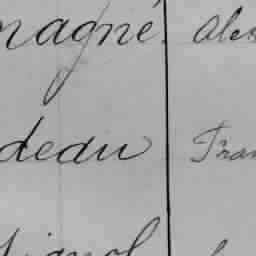 magné Alex
deau Fran
ignol